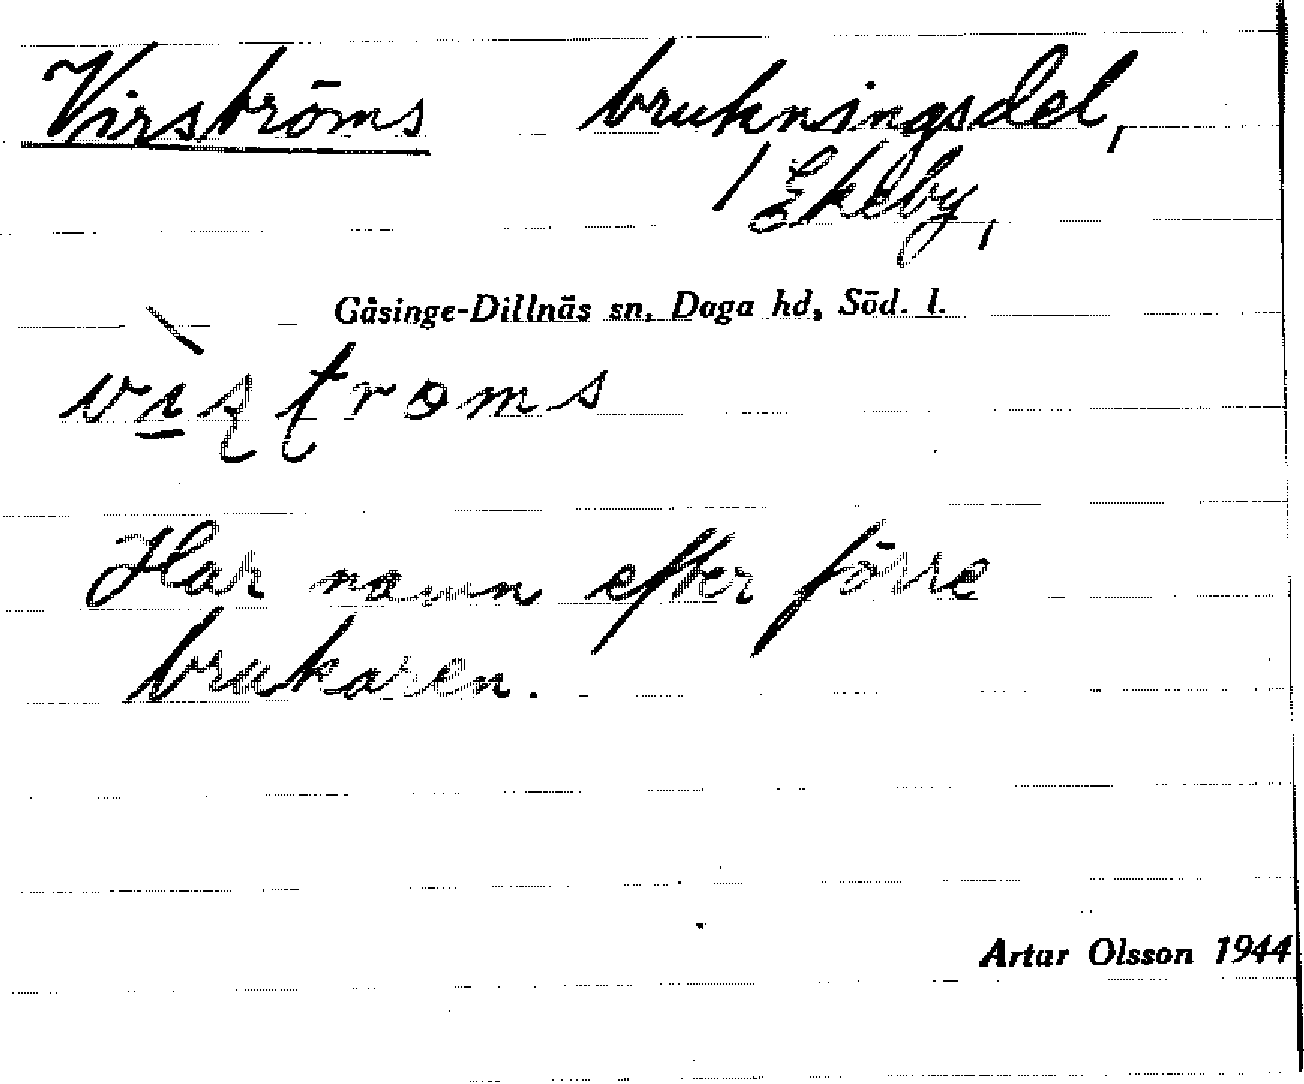 Virströms brukningsdel,
/ Ekeby,
Gåsinge-Dillnäs sn, Daga hd, Söd. l.
Har namn efter förre
brukaren.
Artur Olsson 1944